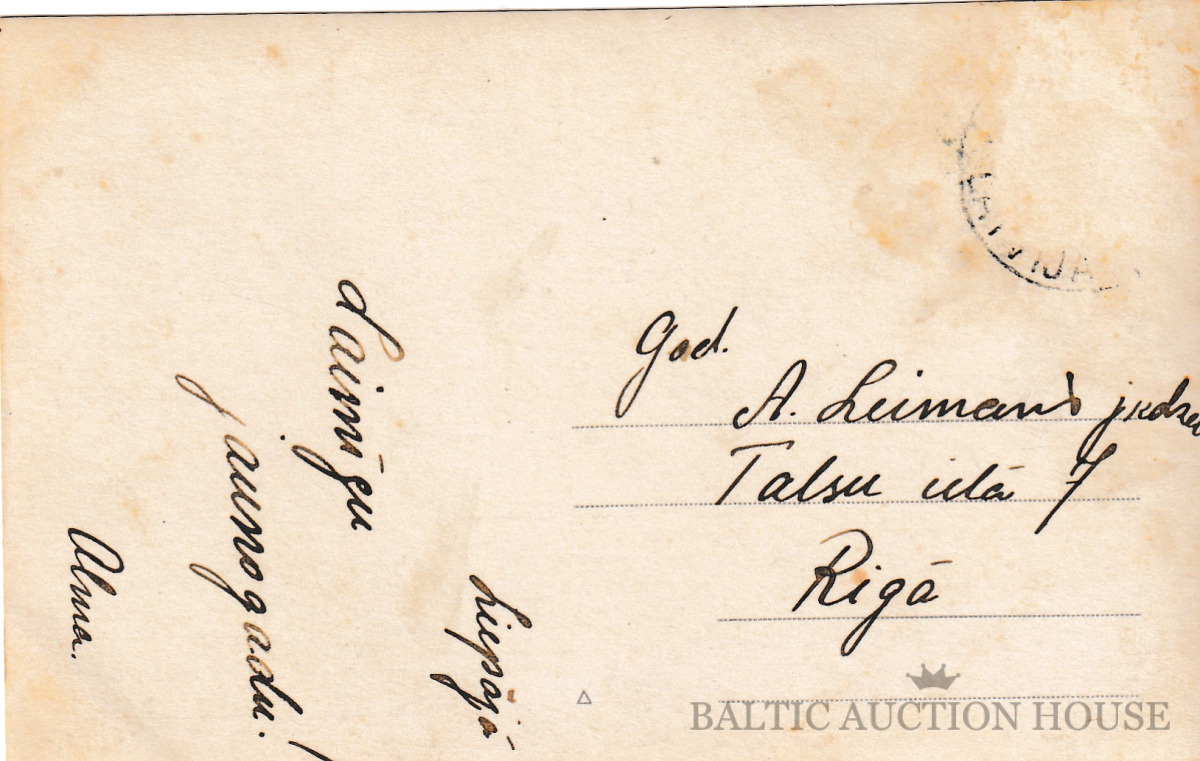 Liepājā
Laimīgu
jaunogadu!
Alma.
LATVIJA
God.
A. Leimaņ jkdze
Talsu ielā 7
Rīgā
BALTIC AUCTION HOUSE